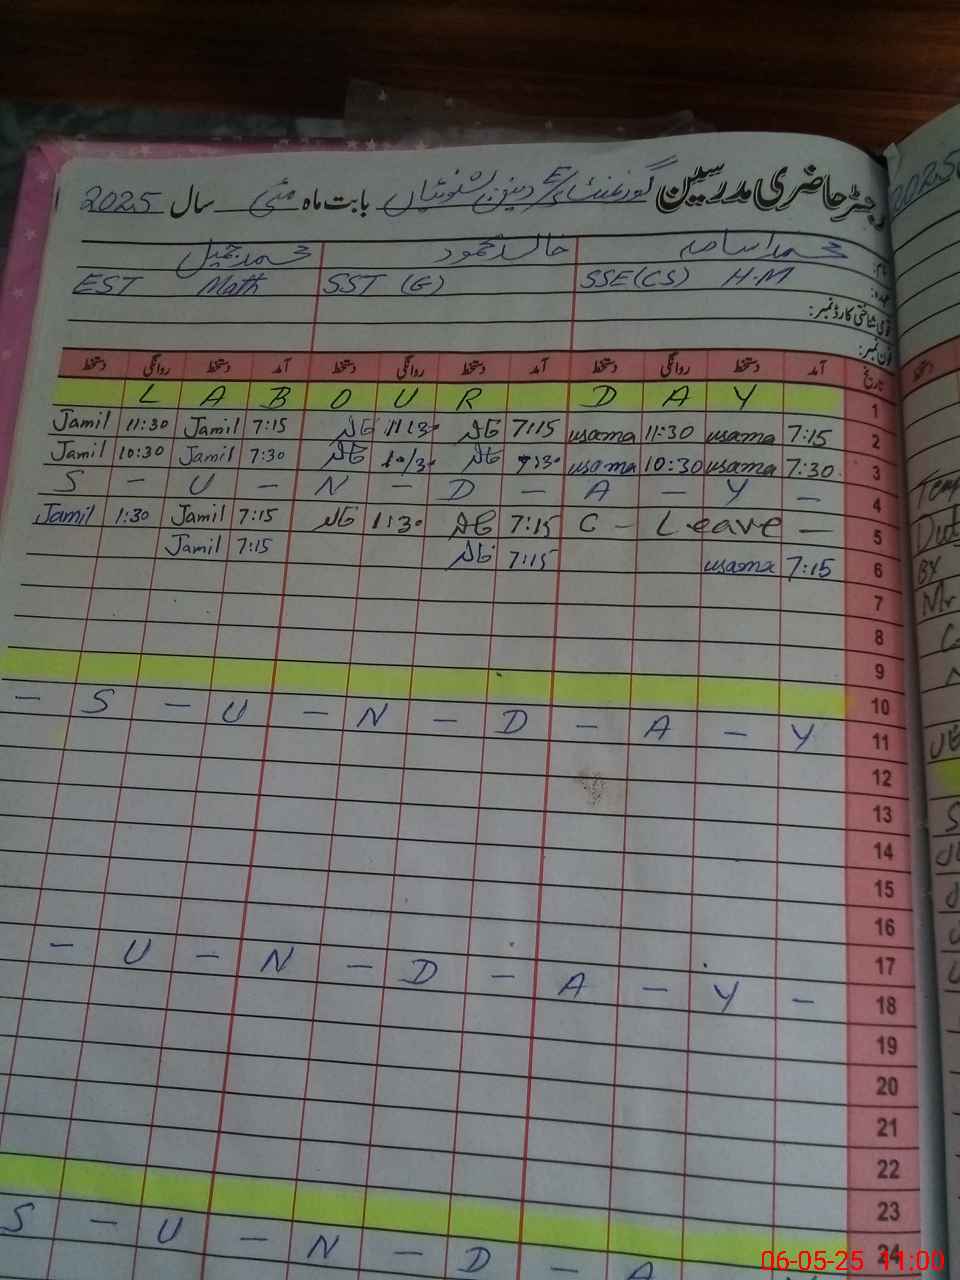 رجسٹر حاضری مدرسین گورنمنٹ بابت ماہ مئی سال 2025
محمد اسامہ خالد محمود محمد جمیل
عہدہ: SSE(CS) H.M SST (G) EST Math
قومی شناختی کارڈ نمبر:
فون نمبر:
تاریخ آمد دستخط روانگی دستخط آمد دستخط روانگی دستخط آمد دستخط روانگی دستخط
L A B O U R D A Y 1
Jamil 11:30 Jamil 7:15 خالد 11:30 خالد 7:15 usama 11:30 usama 7:15 2
Jamil 10:30 Jamil 7:30 خالد 10:30 خالد 7:30 usama 10:30 usama 7:30 3
S - U - N - D - A - Y - 4
Jamil 1:30 Jamil 7:15 خالد 1:30 خالد 7:15 C - Leave - 5
Jamil 7:15 خالد 7:15 usama 7:15 6
7
8
9
10
- S - U - N - D - A - Y 11
12
13
14
15
16
17
- U - N - D - A - Y - 18
19
20
21
22
23
24
S - U - N - D - A
06-05-25 11:00